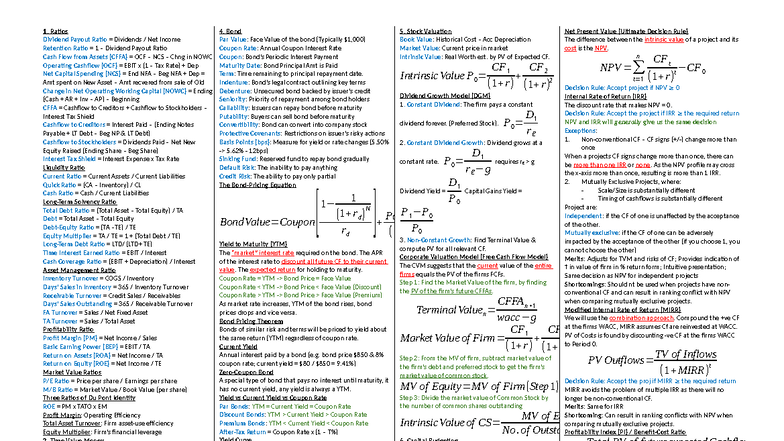 1. Ratios
Dividend Payout Ratio = Dividends / Net Income
Retention Ratio = 1 – Dividend Payout Ratio
Cash Flow from Assets [CFFA] = OCF – NCS – Chng in NOWC
Operating Cashflow [OCF] = EBIT x (1 – Tax Rate) + Dep
Net Capital Spending [NCS] = End NFA – Beg NFA + Dep =
Amt spent on New Asset – Amt recovered from sale of Old
Change in Net Operating Working Capital [NOWC] = Ending
(Cash + AR + Inv – AP) – Beginning
CFFA = Cashflow to Creditors + Cashflow to Stockholders –
Interest Tax Shield
Cashflow to Creditors = Interest Paid – (Ending Notes
Payable + LT Debt – Beg NP & LT Debt)
Cashflow to Stockholders = Dividends Paid – Net New
Equity Raised (Ending Share – Beg Share)
Interest Tax Shield = Interest Expense x Tax Rate
Liquidity Ratio
Current Ratio = Current Assets / Current Liabilities
Quick Ratio = (CA – Inventory) / CL
Cash Ratio = Cash / Current Liabilities
Long-Term Solvency Ratio
Total Debt Ratio = (Total Asset – Total Equity) / TA
Debt = Total Asset – Total Equity
Debt-Equity Ratio = (TA –TE) / TE
Equity Multiplier = TA / TE = 1 + (Total Debt / TE)
Long-Term Debt Ratio = LTD/ (LTD+ TE)
Times Interest Earned Ratio = EBIT / Interest
Cash-Coverage Ratio = (EBIT + Depreciation) / Interest
Asset Management Ratio
Inventory Turnover = COGS / Inventory
Days' Sales in Inventory = 365 / Inventory Turnover
Receivable Turnover = Credit Sales / Receivables
Days' Sales Outstanding = 365 / Receivable Turnover
FA Turnover = Sales / Net Fixed Asset
TA Turnover = Sales / Total Asset
Profitability Ratio
Profit Margin [PM] = Net Income / Sales
Basic Earning Power [BEP] = EBIT / TA
Return on Assets [ROA] = Net Income / TA
Return on Equity [ROE] = Net Income / TE
Market Value Ratios
P/E Ratio = Price per share / Earnings per share
M/B Ratio = Market Value / Book Value (per share)
Three Ratios of Du Pont Identity
ROE = PM x TATO x EM
Profit Margin: Operating Efficiency
Total Asset Turnover: Firm asset-use efficiency
Equity Multiplier: Firm's financial leverage
4. Bond
Par Value: Face Value of the bond [Typically $1,000]
Coupon Rate: Annual Coupon Interest Rate
Coupon: Bond's Periodic Interest Payment
Maturity Date: Bond Principal Amt is Paid
Term: Time remaining to principal repayment date.
Indenture: Bond's legal contract outlining key terms
Debenture: Unsecured bond backed by issuer's credit
Seniority: Priority of repayment among bond holders
Callability: Issuers can repay bond before maturity
Putability: Buyers can sell bond before maturity
Convertibility: Bond can convert into company stock
Protective Covenants: Restrictions on issuer's risky actions
Basis Points [bps]: Measure for yield or rate changes (5.50%
-> 5.62% = 12bps)
Sinking Fund: Reserved fund to repay bond gradually
Default Risk: The inability to pay anything
Credit Risk: The ability to pay only partial
The Bond-Pricing Equation
Bond Value = Coupon [ 1 − 1 / (1 + r_d)^N / r_d ] +
Yield to Maturity [YTM]
The "market" interest rate required on the bond. The APR
of the interest rate to discount all future CF to their current
value. The expected return for holding to maturity.
Coupon Rate = YTM -> Bond Price = Face Value
Coupon Rate < YTM -> Bond Price < Face Value (Discount)
Coupon Rate > YTM -> Bond Price > Face Value (Premium)
As market rate increases, YTM of the bond rises, bond
prices drops and vice versa.
Bond Pricing Theorem
Bonds of similar risk and terms will be priced to yield about
the same return (YTM) regardless of coupon rate.
Current Yield
Annual interest paid by a bond (e.g. bond price $850 & 8%
coupon rate; current yield = $80 / $850 = 9.41%)
Zero-Coupon Bond
A special type of bond that pays no interest until maturity, it
has no current yield, any yield is always YTM.
Yield vs Current Yield vs Coupon Rate
Par Bonds: YTM = Current Yield = Coupon Rate
Discount Bonds: YTM > Current Yield > Coupon Rate
Premium Bonds: YTM < Current Yield < Coupon Rate
After-Tax Return = Coupon Rate x (1 – T%)
5. Stock Valuation
Book Value: Historical Cost – Acc Depreciation
Market Value: Current price in market
Intrinsic Value: Real Worth est. by PV of Expected CF.
Intrinsic Value P_0 = CF_1 / (1+r) + CF_2 / (1+r)^2
Dividend Growth Model [DGM]
1. Constant Dividend: The firm pays a constant
dividend forever. (Preferred Stock). P_0 = D_1 / r_e
2. Constant Dividend Growth: Dividend grows at a
constant rate. P_0 = D_1 / r_e − g requires r_e > g
Dividend Yield = D_1 / P_0 Capital Gains Yield =
P_1 − P_0 / P_0
3. Non-Constant Growth: Find Terminal Value &
compute PV for all relevant CF.
Corporate Valuation Model [Free Cash Flow Model]
The CVM suggests that the current value of the entire
firm equals the PV of the firms FCFs.
Step 1: Find the Market Value of the firm, by finding
the PV of the firm's future CFFAs.
Terminal Value_n = CFFA_n+1 / wacc − g
Market Value of Firm = CF_1 / (1+r) +
Step 2: From the MV of firm, subtract market value of
the firm's debt and preferred stock to get the firm's
market value of common stock.
MV of Equity = MV of Firm (Step 1)
Step 3: Divide the market value of Common Stock by
the number of common shares outstanding
Intrinsic Value of CS = MV of E / No. of Outst
Net Present Value [Ultimate Decision Rule]
The difference between the intrinsic value of a project and its
cost is the NPV.
NPV = Σ n t=1 CF_t / (1+r)^t − CF_0
Decision Rule: Accept project if NPV ≥ 0
Internal Rate of Return [IRR]
The discount rate that makes NPV = 0.
Decision Rule: Accept the project if IRR ≥ required return
NPV and IRR will generally give us the same decision
Exceptions:
1. Non-conventional CF – CF signs (+/-) change more than
once
When a projects CF signs change more than once, there can
be more than one IRR or none. As the NPV profile may cross
the x-axis more than once, resulting is more than 1 IRR.
2. Mutually Exclusive Projects, where:
- Scale/Size is substantially different
- Timing of cashflows is substantially different
Project are:
Independent: if the CF of one is unaffected by the acceptance
of the other.
Mutually exclusive: if the CF of one can be adversely
impacted by the acceptance of the other (if you choose 1, you
cannot choose the other)
Merits: Adjusts for TVM and risks of CF; Provides indication of
↑ in value of firm in % return form; Intuitive presentation;
Same decision as NPV for independent projects
Shortcomings: Should nt be used when projects have non-
conventional CF and can result in ranking conflict with NPV
when comparing mutually exclusive projects.
Modified Internal Rate of Return [MIRR]
We will use the combination approach. Compound the +ve CF
at the firms WACC, MIRR assumes CF are reinvested at WACC.
PV of Costs is found by discounting -ve CF at the firms WACC
to Period 0.
PV Outflows = TV of Inflows / (1 + MIRR)^t
Decision Rule: Accept the proj if MIRR ≥ the required return
MIRR avoids the problem of multiple IRR as there will no
longer be non-conventional CF.
Merits: Same for IRR
Shortcoming: Can result in ranking conflicts with NPV when
comparing mutually exclusive projects.
Profitability Index [PI] / Benefit-Cost Ratio